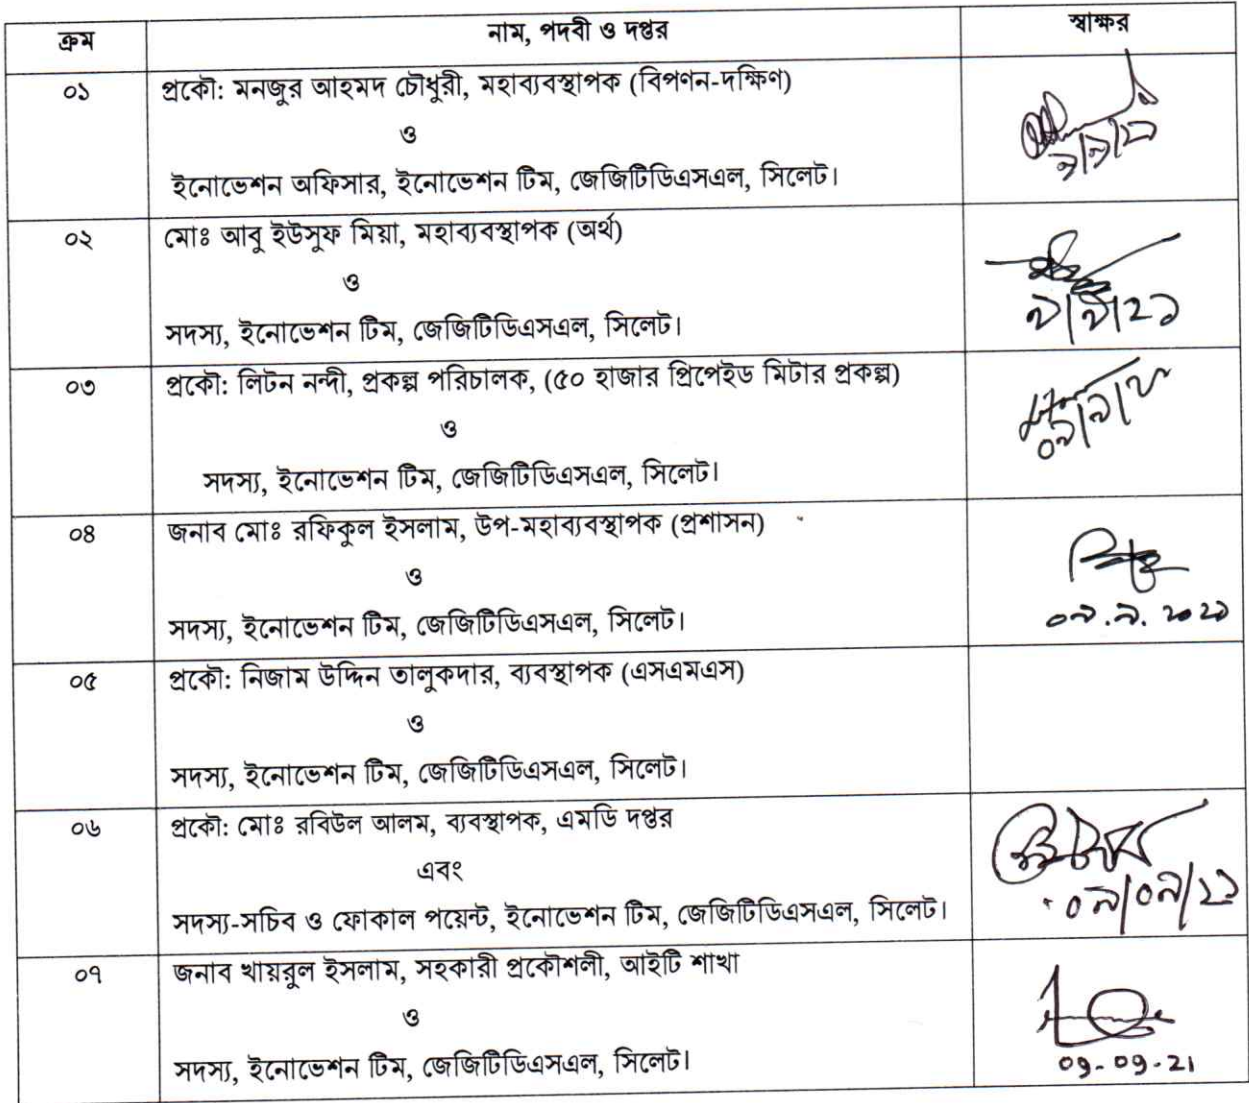 ক্রম নাম, পদবী ও দপ্তর স্বাক্ষর
০১ প্রকৌ: মনজুর আহমদ চৌধুরী, মহাব্যবস্থাপক (বিপণন-দক্ষিণ)
ও
ইনোভেশন অফিসার, ইনোভেশন টিম, জেজিটিডিএসএল, সিলেট।
০২ মোঃ আবু ইউসুফ মিয়া, মহাব্যবস্থাপক (অর্থ)
ও
৯/৯/২১
সদস্য, ইনোভেশন টিম, জেজিটিডিএসএল, সিলেট।
০৩ প্রকৌ: লিটন নন্দী, প্রকল্প পরিচালক, (৫০ হাজার প্রিপেইড মিটার প্রকল্প)
ও
সদস্য, ইনোভেশন টিম, জেজিটিডিএসএল, সিলেট।
০৪ জনাব মোঃ রফিকুল ইসলাম, উপ-মহাব্যবস্থাপক (প্রশাসন)
ও
সদস্য, ইনোভেশন টিম, জেজিটিডিএসএল, সিলেট।
০৯.৯.২০২১
০৫ প্রকৌ: নিজাম উদ্দিন তালুকদার, ব্যবস্থাপক (এসএমএস)
ও
সদস্য, ইনোভেশন টিম, জেজিটিডিএসএল, সিলেট।
০৬ প্রকৌ: মোঃ রবিউল আলম, ব্যবস্থাপক, এমডি দপ্তর
এবং
সদস্য-সচিব ও ফোকাল পয়েন্ট, ইনোভেশন টিম, জেজিটিডিএসএল, সিলেট।
০৯/০৯/২১
০৭ জনাব খায়রুল ইসলাম, সহকারী প্রকৌশলী, আইটি শাখা
ও
সদস্য, ইনোভেশন টিম, জেজিটিডিএসএল, সিলেট।
09-09-21